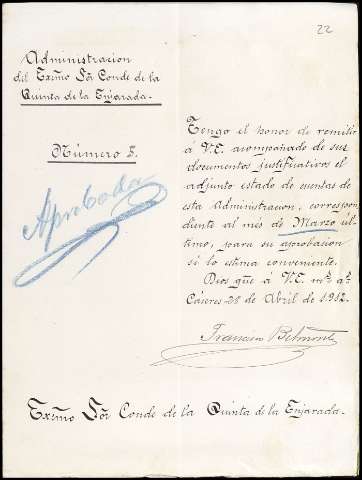 22
Administracion
del Exmo Sór Conde de la
Quinta de la Enjarada.
Número 3.
Aprobada
Tengo el honor de remitir
á V.E. acompañado de sus
documentos justificativos el
adjunto estado de cuentas de
esta Administracion, correspon
diente al mes de Marzo úl-
timo, para su aprobacion
si lo estima conveniente.
Dios gue á V.E. ms as
Cáceres 28 de Abril de 1912.
Francisco Belmonte
Exmo Sór Conde de la Quinta de la Enjarada.